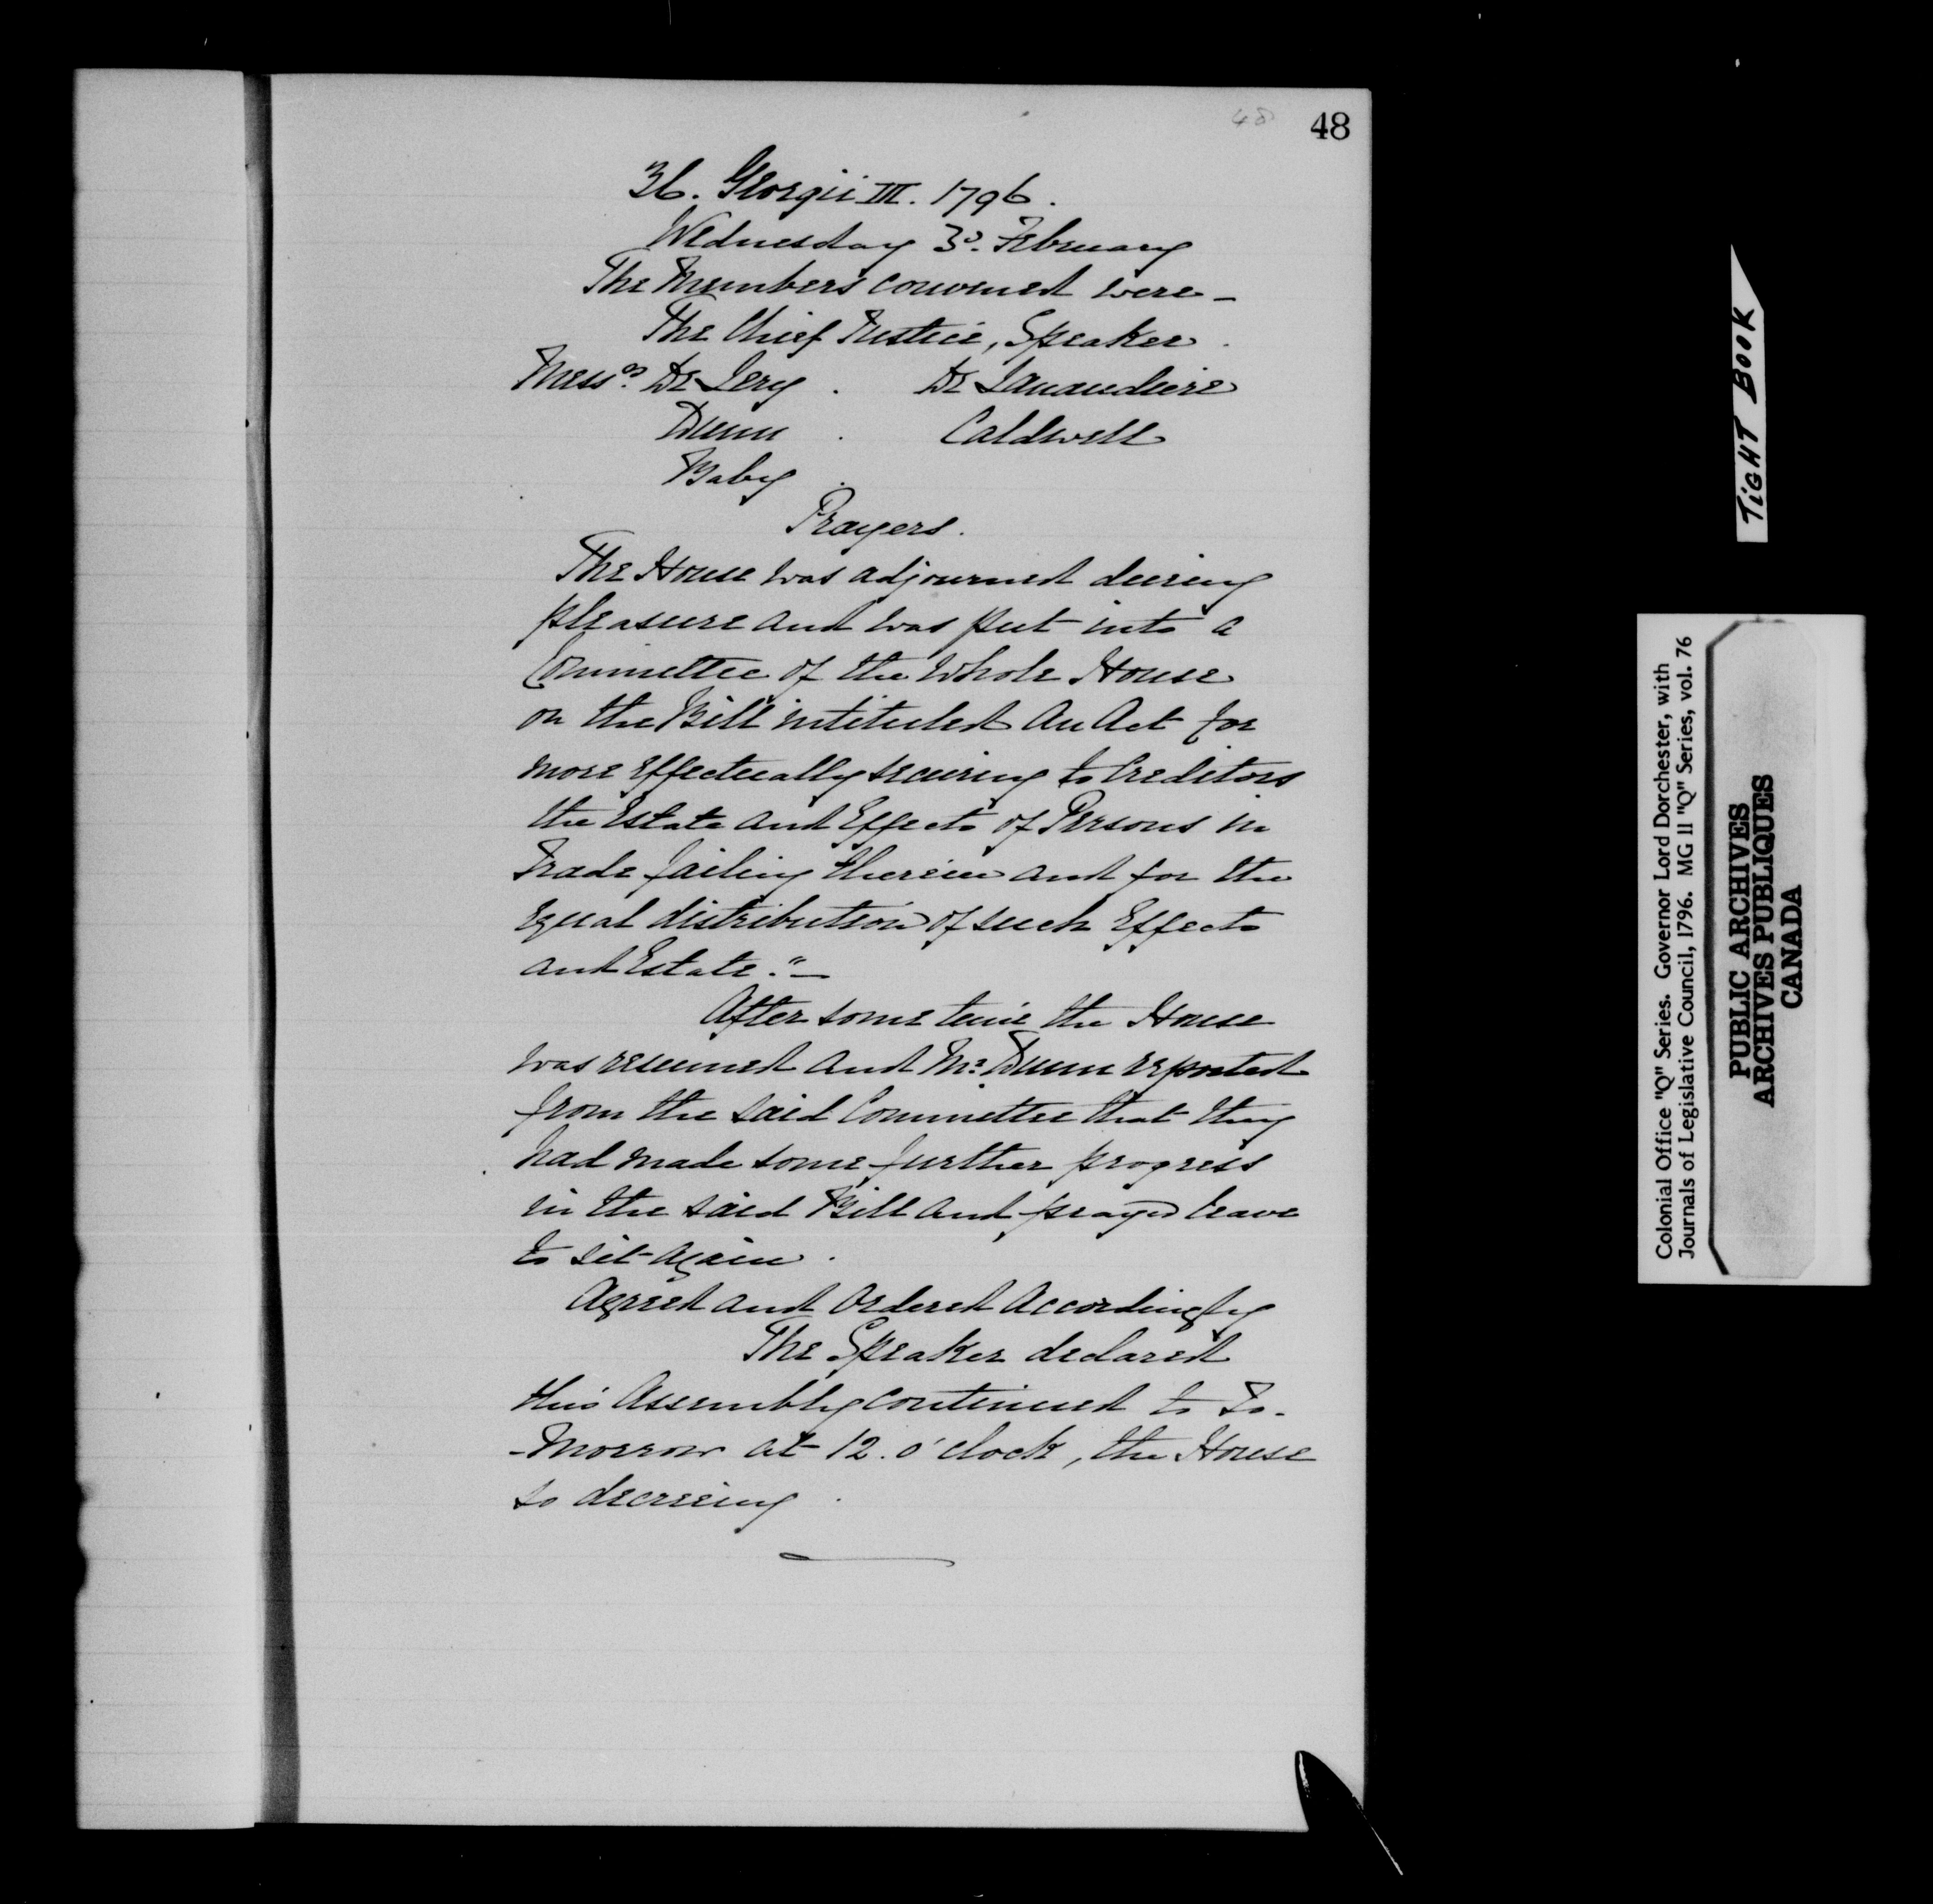 48
48
36. Georgii III. 1796.
Wednesday 3d. February
The Members convened were -
The Chief Justice, Speaker.
Mess.rs De Lery . De Lanaudiere
Dunn . Caldwell
Baby .
Prayers.
The House was adjourned during
pleasure and was put into a
Committee of the Whole House
on the Bill intituled An Act for
more effectually securing to Creditors
the Estate and Effects of Persons in
Trade failing therein and for the
equal distribution of such Effects
and Estate."-
After some time the House
was resumed and Mr. Dunn reported
from the said Committee that they
had made some further progress
in the said Bill and prayed leave
to sit again.
Agreed and Ordered Accordingly
The Speaker declared
this Assembly continued to To-
-Morrow at 12. o'clock, the House
so decreeing.
TIGHT BOOK
Colonial Office "Q" Series. Governor Lord Dorchester, with
Journals of Legislative Council, 1796. MG 11 "Q" Series, vol. 76
PUBLIC ARCHIVES
ARCHIVES PUBLIQUES
CANADA